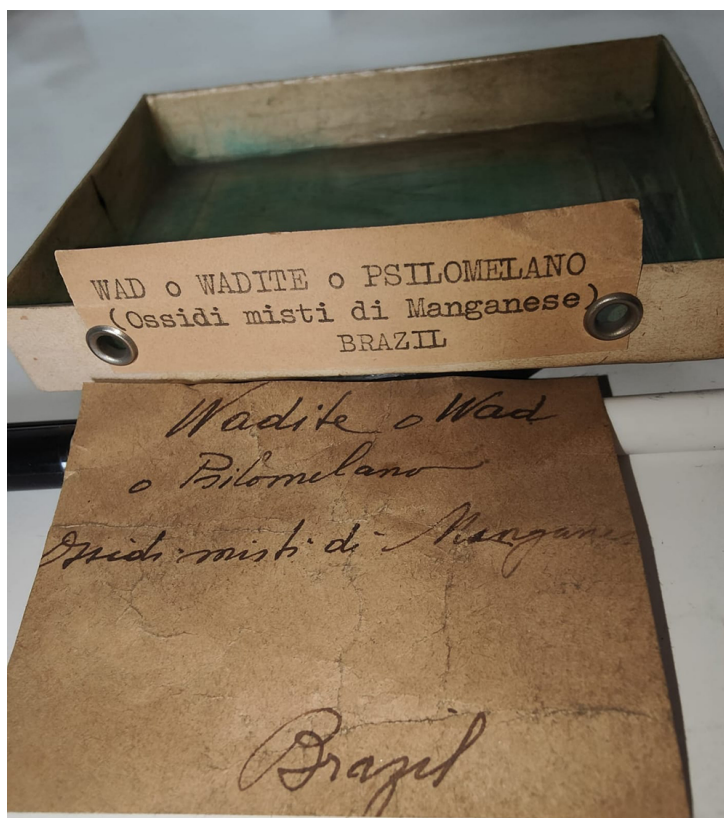 WAD o WADITE o PSILOMELANO
(Ossidi misti di Manganese)
BRAZIL
Wadite o Wad
o Psilomelano
Ossidi misti di Mangane
Brazil